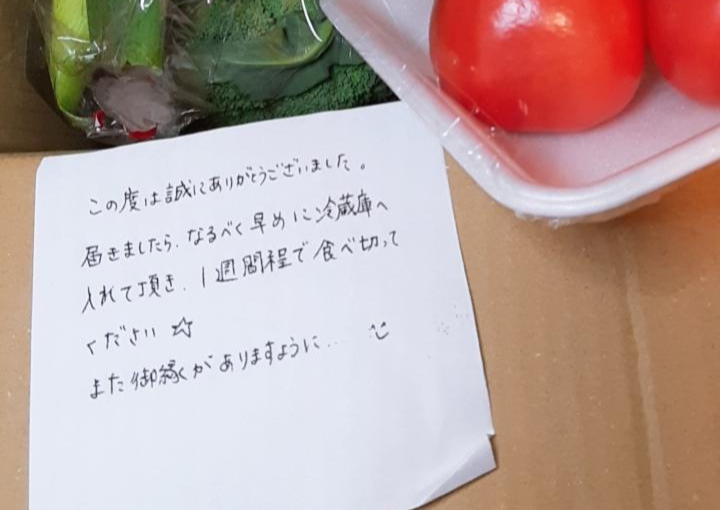 この度は誠にありがとうございました。
届きましたら、なるべく早めに冷蔵庫へ
入れて頂き、1週間程で食べ切って
ください☆
また御縁がありますように...